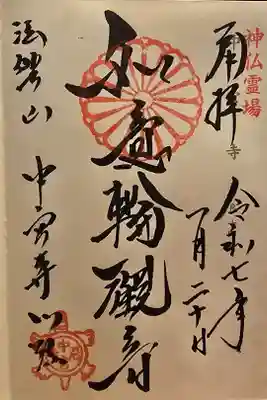 神仏霊場
奉拝
令和七年
一月二十日
如意輪觀音
法興山
中宮寺門跡